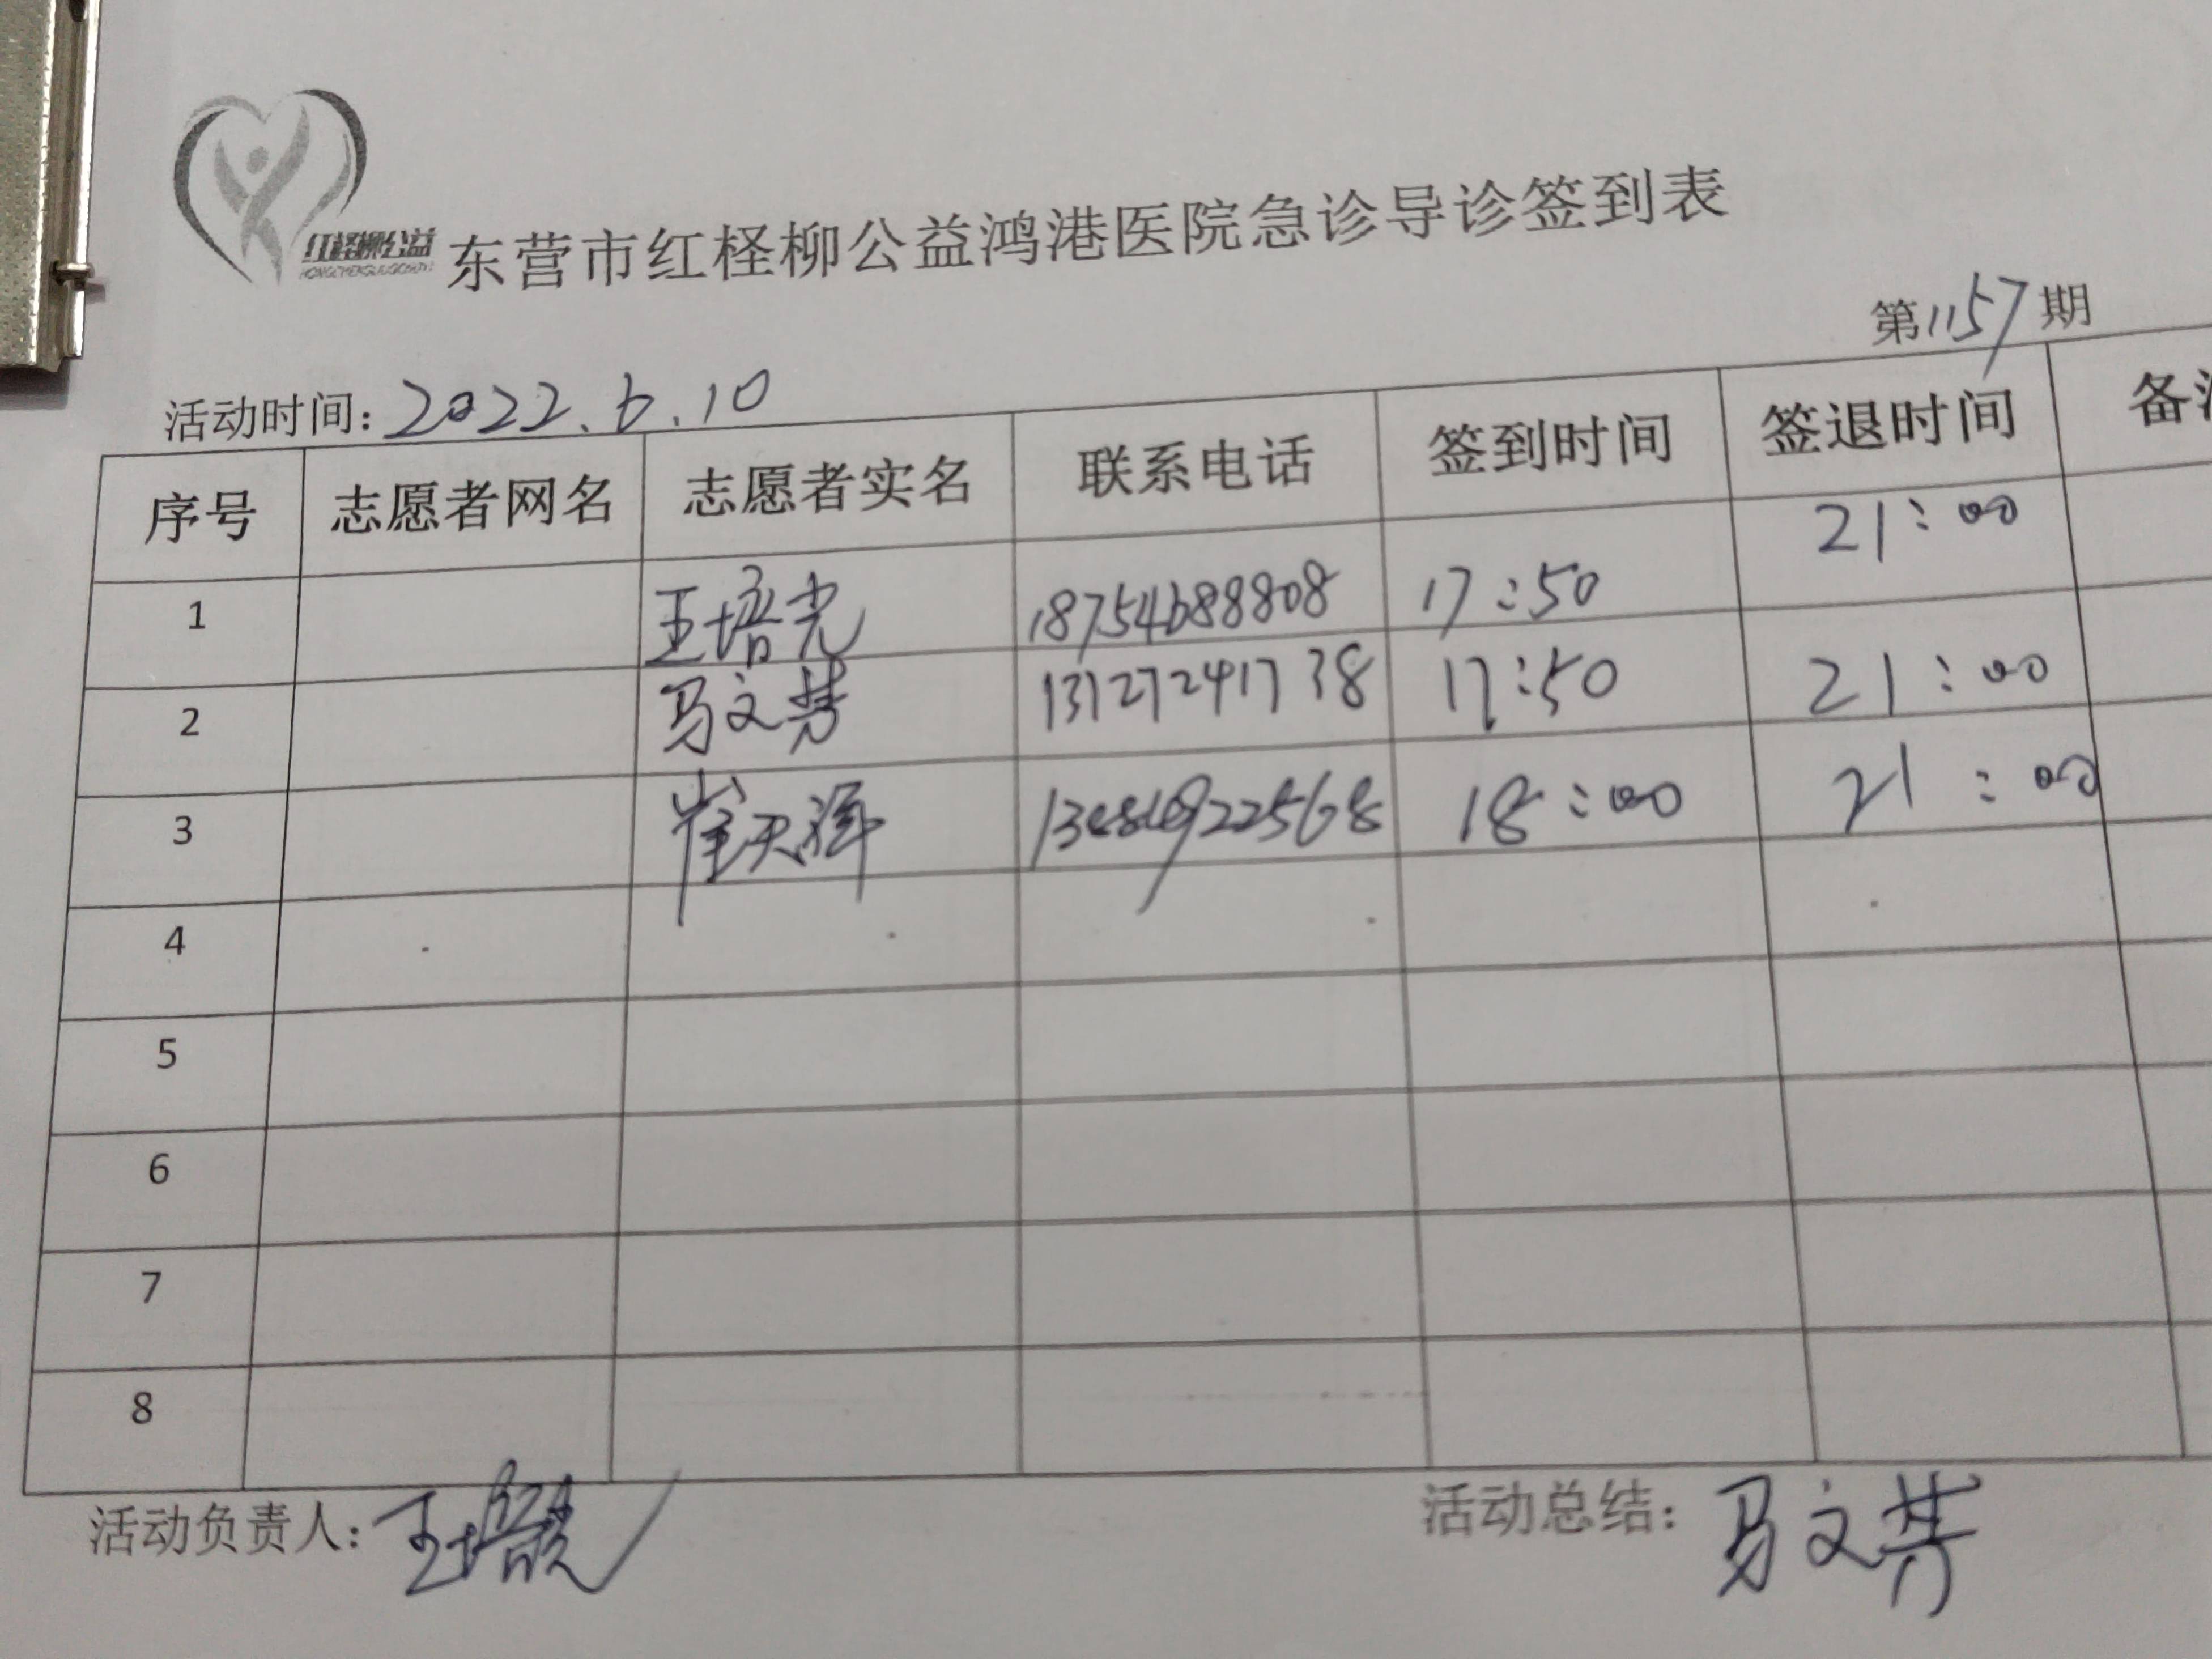 红柽柳公益
东营市红柽柳公益鸿港医院急诊导诊签到表
第1157期
活动时间：2022.6.10
序号 志愿者网名 志愿者实名 联系电话 签到时间 签退时间
1 王培光 18754688808 17:50 21:00
2 马文 13127241738 17:50 21:00
3 崔天 18:00 21:00
4
5
6
7
8
活动负责人：王培
活动总结：马文